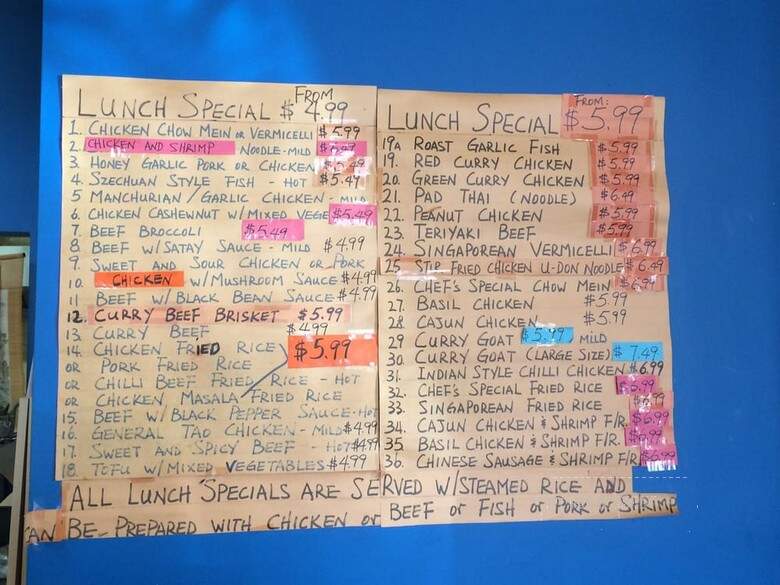 LUNCH SPECIAL FROM $4.99
1. CHICKEN CHOW MEIN OR VERMICELLI $5.99
2. CHICKEN AND SHRIMP NOODLE-MILD
3. HONEY GARLIC PORK OR CHICKEN
4. SZECHUAN STYLE FISH - HOT $5.49
5 MANCHURIAN / GARLIC CHICKEN - MILD
6. CHICKEN CASHEWNUT W/MIXED VEGE $5.49
7. BEEF BROCCOLI $5.49
8 BEEF W/SATAY SAUCE - MILD $4.99
9. SWEET AND SOUR CHICKEN OR PORK
10. CHICKEN W/MUSHROOM SAUCE $4.99
11 BEEF W/BLACK BEAN SAUCE $4.99
12. CURRY BEEF BRISKET $5.99
13 CURRY BEEF $4.99
14. CHICKEN FRIED RICE $5.99
OR PORK FRIED RICE
OR CHILLI BEEF FRIED RICE - HOT
OR CHICKEN MASALA FRIED RICE
15. BEEF W/BLACK PEPPER SAUCE-HOT
16. GENERAL TAO CHICKEN - MILD $4.99
17. SWEET AND SPICY BEEF - HOT $4.99
18. TOFU W/MIXED VEGETABLES $4.99
LUNCH SPECIAL FROM: $5.99
19A ROAST GARLIC FISH $5.99
19. RED CURRY CHICKEN $5.99
20. GREEN CURRY CHICKEN $5.99
21. PAD THAI (NOODLE) $6.49
22. PEANUT CHICKEN $5.99
23. TERIYAKI BEEF $5.99
24. SINGAPOREAN VERMICELLI $6.99
25 STIR FRIED CHICKEN U-DON NOODLE $6.49
26. CHEF'S SPECIAL CHOW MEIN
27. BASIL CHICKEN $5.99
28 CAJUN CHICKEN $5.99
29 CURRY GOAT $5.99 MILD
30. CURRY GOAT (LARGE SIZE) $7.49
31. INDIAN STYLE CHILLI CHICKEN $6.99
32. CHEF'S SPECIAL FRIED RICE $6.99
33. SINGAPOREAN FRIED RICE
34. CAJUN CHICKEN & SHRIMP F/R. $6.99
35. BASIL CHICKEN & SHRIMP F/R.
36. CHINESE SAUSAGE & SHRIMP F/R $6.99
ALL LUNCH SPECIALS ARE SERVED W/STEAMED RICE AND
AN BE PREPARED WITH CHICKEN OR BEEF OR FISH OR PORK OR SHRIMP